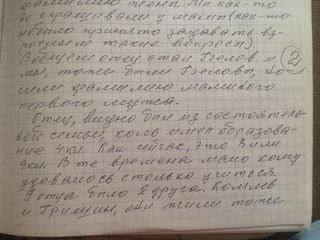 фамилию жены. Мы как-то
не спрашивали у мамы (как-то
небыло принято задавать вз-
рослым такие вопросы)
2
Вобщем отец стал Беловым и
мы, тоже были Беловы, но-
сили фамилию маминого
первого мужа.
Отец, видно был из состоятель-
ной семьи, коль имел образова-
ние 4 кл. Как сейчас, это 8 или
9 кл. В те времена мало кому
удавалось столько учиться.
У отца было 2 друга.
и Гришин, они жили тоже